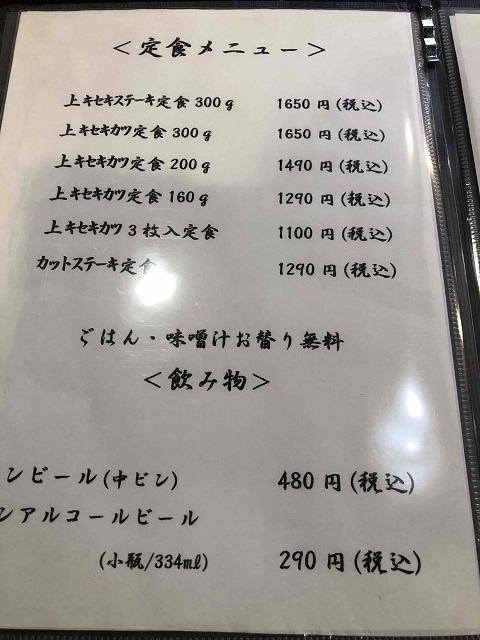 ＜定食メニュー＞
上キセキステーキ定食 300g 1650円(税込)
上キセキカツ定食 300g 1650円(税込)
上キセキカツ定食 200g 1490円(税込)
上キセキカツ定食 160g 1290円(税込)
上キセキカツ3枚入定食 1100円(税込)
カットステーキ定食 1290円(税込)
ごはん・味噌汁お替り無料
＜飲み物＞
ンビール(中ビン) 480円(税込)
ンアルコールビール
(小瓶/334ml) 290円(税込)